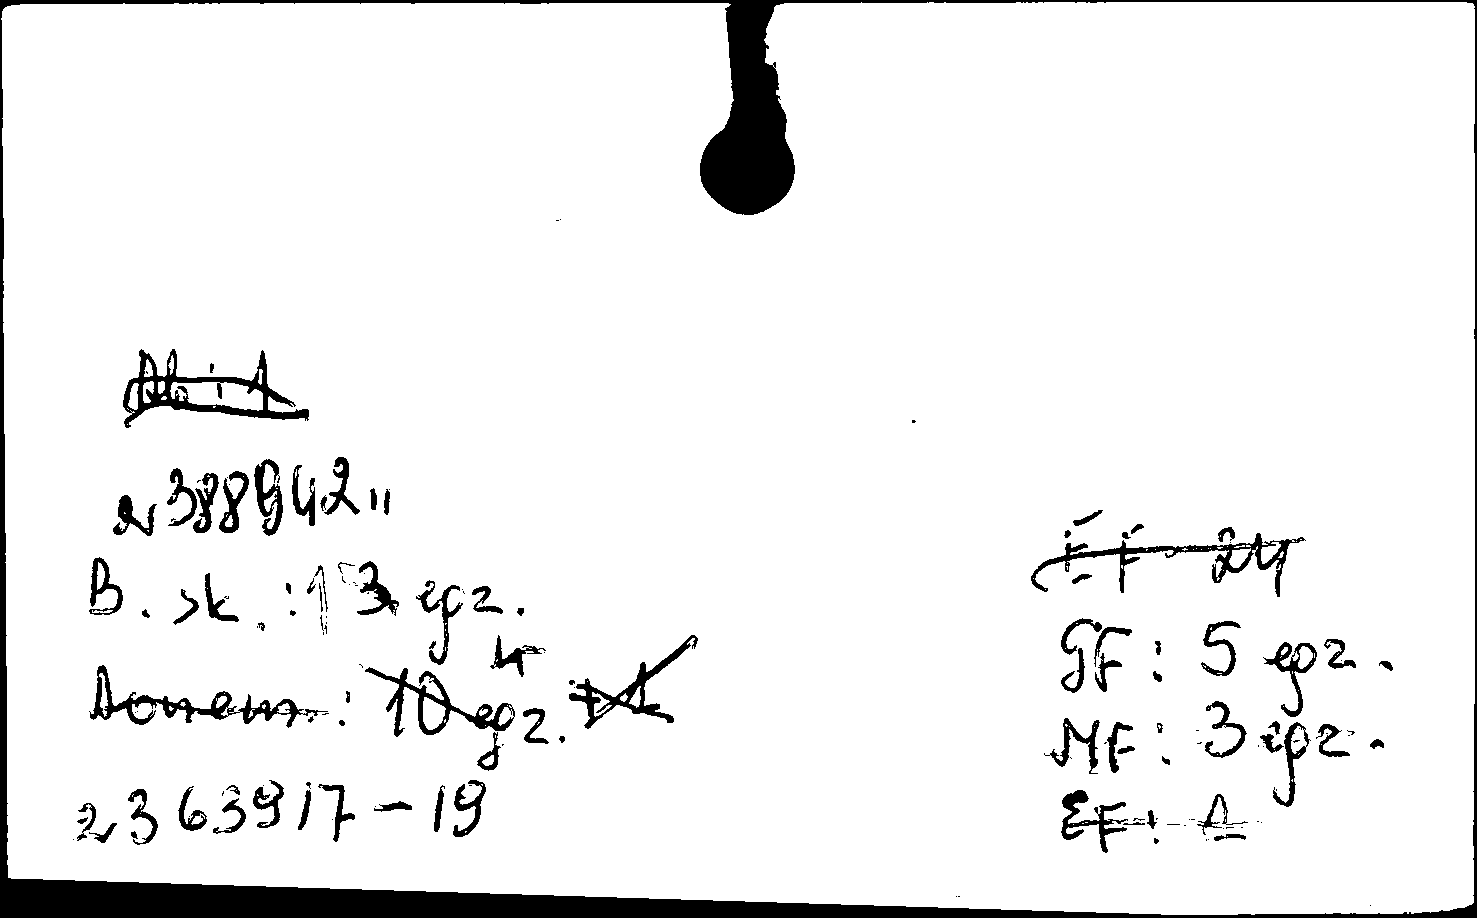 Ab: 1
2388942"
B. sk.: 13 egz.
4
Abonem.: 10 egz. + 1
2363917-19
EF - 24
GF: 5 egz.
MF: 3 egz.
EF: 1